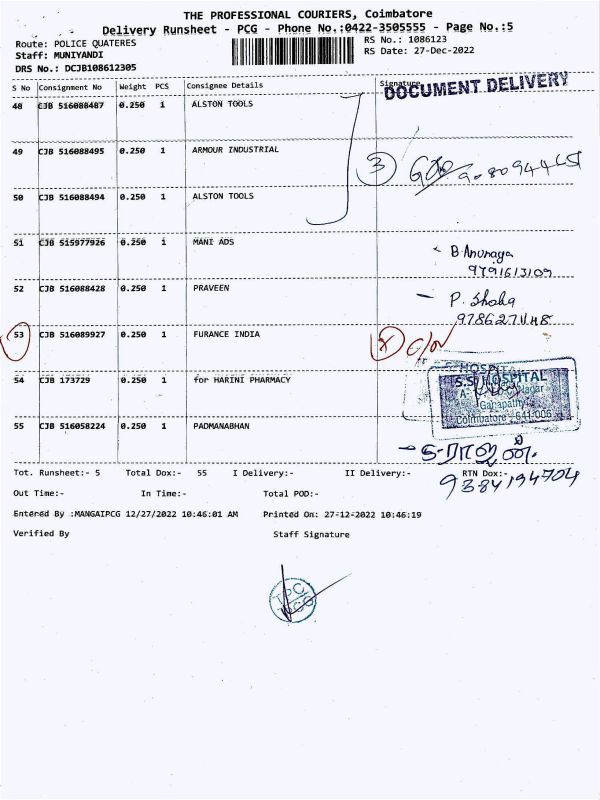 THE PROFESSIONAL COURIERS, Coimbatore
Delivery Runsheet - PCG - Phone No.:0422-3505555 - Page No.:5
Route: POLICE QUATERES
RS No.: 1086123
Staff: MUNIYANDI
RS Date: 27-Dec-2022
DRS No.: DCJB1086112305
S No Consignment No Weight PCS Consignee Details Signature
DOCUMENT DELIVERY
48 CJB 516088487 0.250 1 ALSTON TOOLS
49 CJB 516088495 0.250 1 ARMOUR INDUSTRIAL
3
50 CJB 516088494 0.250 1 ALSTON TOOLS
51 CJB 515977926 0.250 1 MANI ADS
B Anunaga
9791613109
52 CJB 516088428 0.250 1 PRAVEEN
P. Shoba
53 CJB 516089927 0.250 1 FURANCE INDIA
54 CJB 173729 0.250 1 for HARINI PHARMACY
S.S. HOSPITAL
Ganapathy
Coimbatore - 641 006
55 CJB 516058224 0.250 1 PADMANABHAN
9384194704
Tot. Runsheet:- 5 Total Dox:- 55 I Delivery:- II Delivery:- RTN Dox:-
Out Time:- In Time:- Total POD:-
Entered By :MANGAIPCG 12/27/2022 10:46:01 AM Printed On: 27-12-2022 10:46:19
Verified By Staff Signature